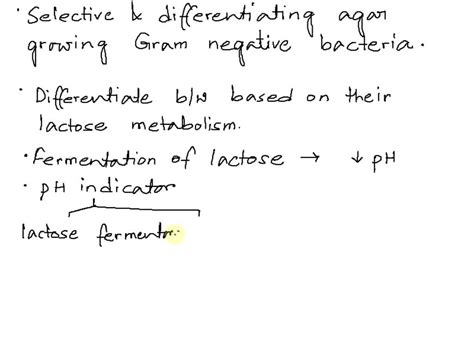 · Selective & differentiating agar
growing Gram negative bacteria.
· Differentiate b/w based on their
lactose metabolism.
· Fermentation of lactose → ↓ pH
· pH indicator
lactose fermentr.